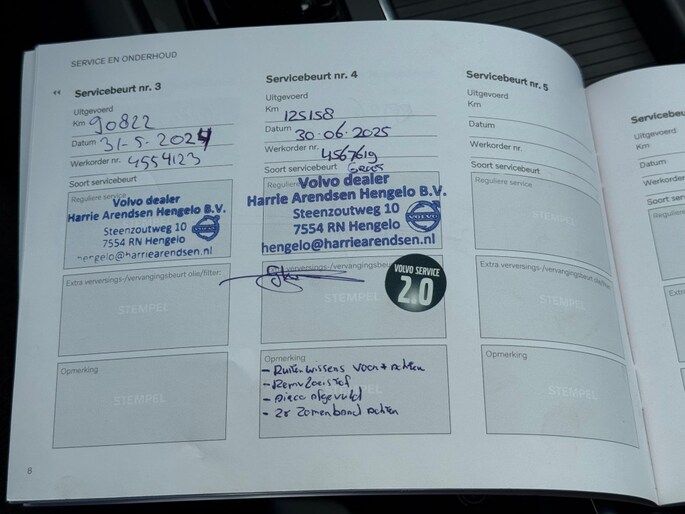 SERVICE EN ONDERHOUD
Servicebeurt nr. 3
Uitgevoerd
Km 90822
Datum 31-5-2024
Werkorder nr. 4554123
Soort servicebeurt
Reguliere service
Volvo dealer
Harrie Arendsen Hengelo B.V.
Steenzoutweg 10
7554 RN Hengelo
hengelo@harriearendsen.nl
VOLVO
Extra verversings-/vervangingsbeurt olie/filter:
STEMPEL
Opmerking
STEMPEL
Servicebeurt nr. 4
Uitgevoerd
Km 125158
Datum 30-06-2025
Werkorder nr. 4567619
Soort servicebeurt
Reguliere
Volvo dealer
Harrie Arendsen Hengelo B.V.
Steenzoutweg 10
7554 RN Hengelo
hengelo@harriearendsen.nl
VOLVO
verversings-/vervangingsbeurt
VOLVO SERVICE
2.0
STEMPEL
Opmerking
- Ruitenwissers voor + achter
- Remvloeistof
- Airco afgevuld
- 2x Zomerband achter
STEMPEL
Servicebeurt nr. 5
Uitgevoerd
Km
Datum
Werkorder nr.
Soort servicebeurt
Reguliere service
STEMPEL
Extra verversings-/vervangingsbeurt olie/filter:
STEMPEL
Opmerking
STEMPEL
8
Servicebeu
Uitgevoerd
Km
Datum
Werkorder
Soort serv
Extra ver
Opmerki